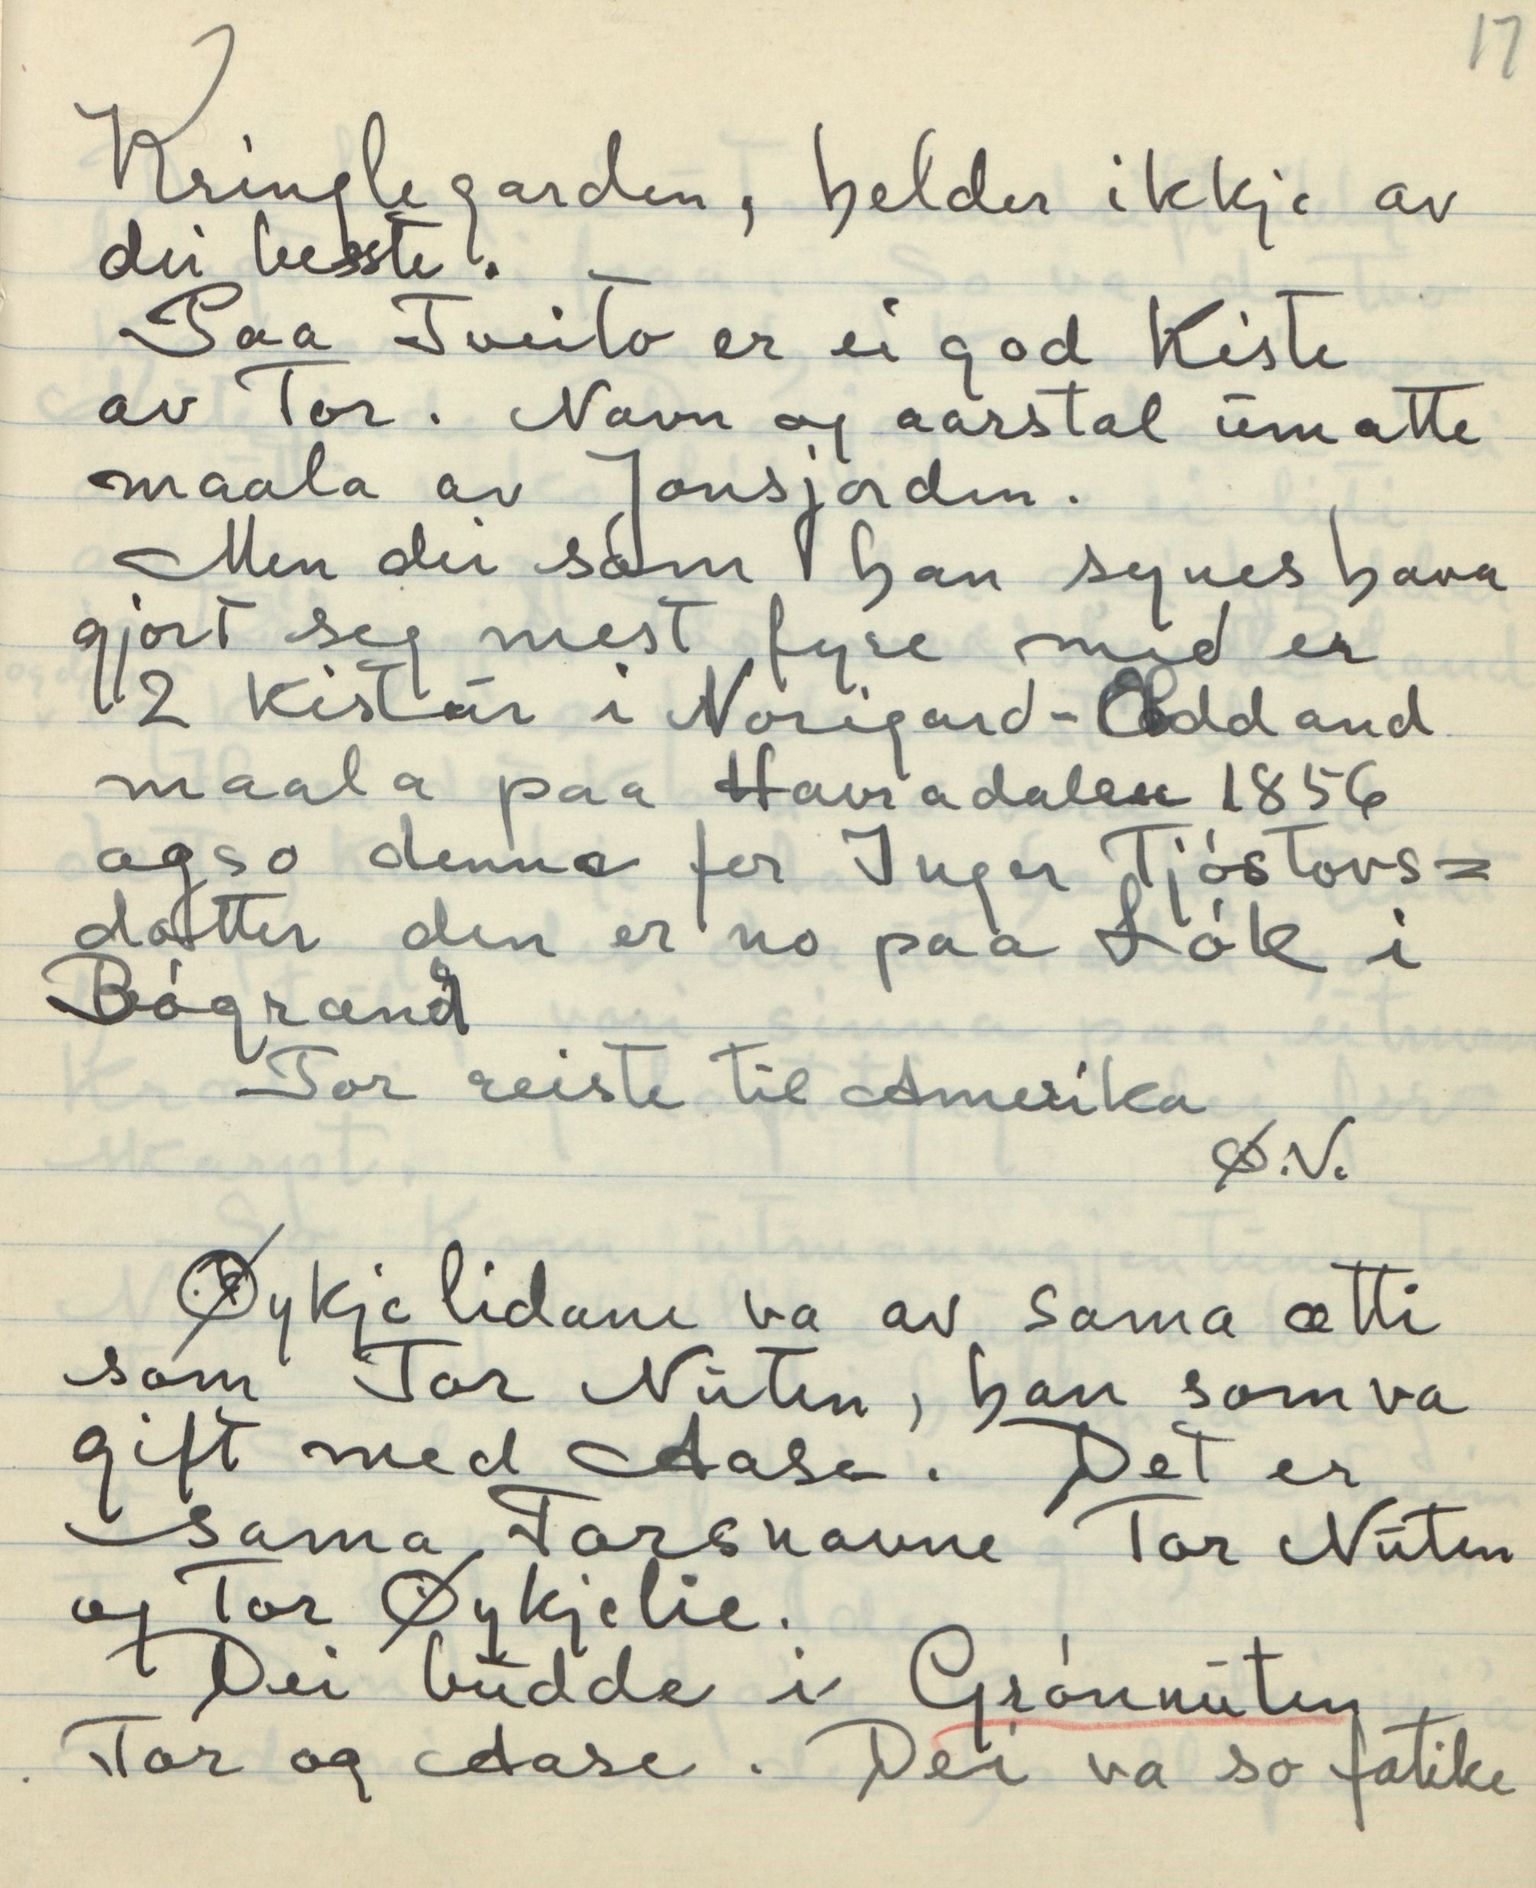 17
Kringlegarden, helder ikkje av
dei besste.
Paa Tveito er ei god Kiste
av Tor. Navn og aarstal ümatte
maala av Jonsjorden.
Men dei sóm han synes hava
gjort seg mest fyre med er
2 Kistür i Norigard-Åddand
maala paa Havradalen 1856
ogso denne for Inger Tjóstovs=
dotter den er no paa Lók i
Bógrænd
Tor reiste til Amerika
Ø.V.
Øykjelidane va av sama ætti
som Tor Nüten, han som va
gift med Aase. Det er
sama Torsnavne Tor Nüten
og Tor Øykjelie.
Dei büdde i Grónnüten
Tor og Aase. Dei va so fatike